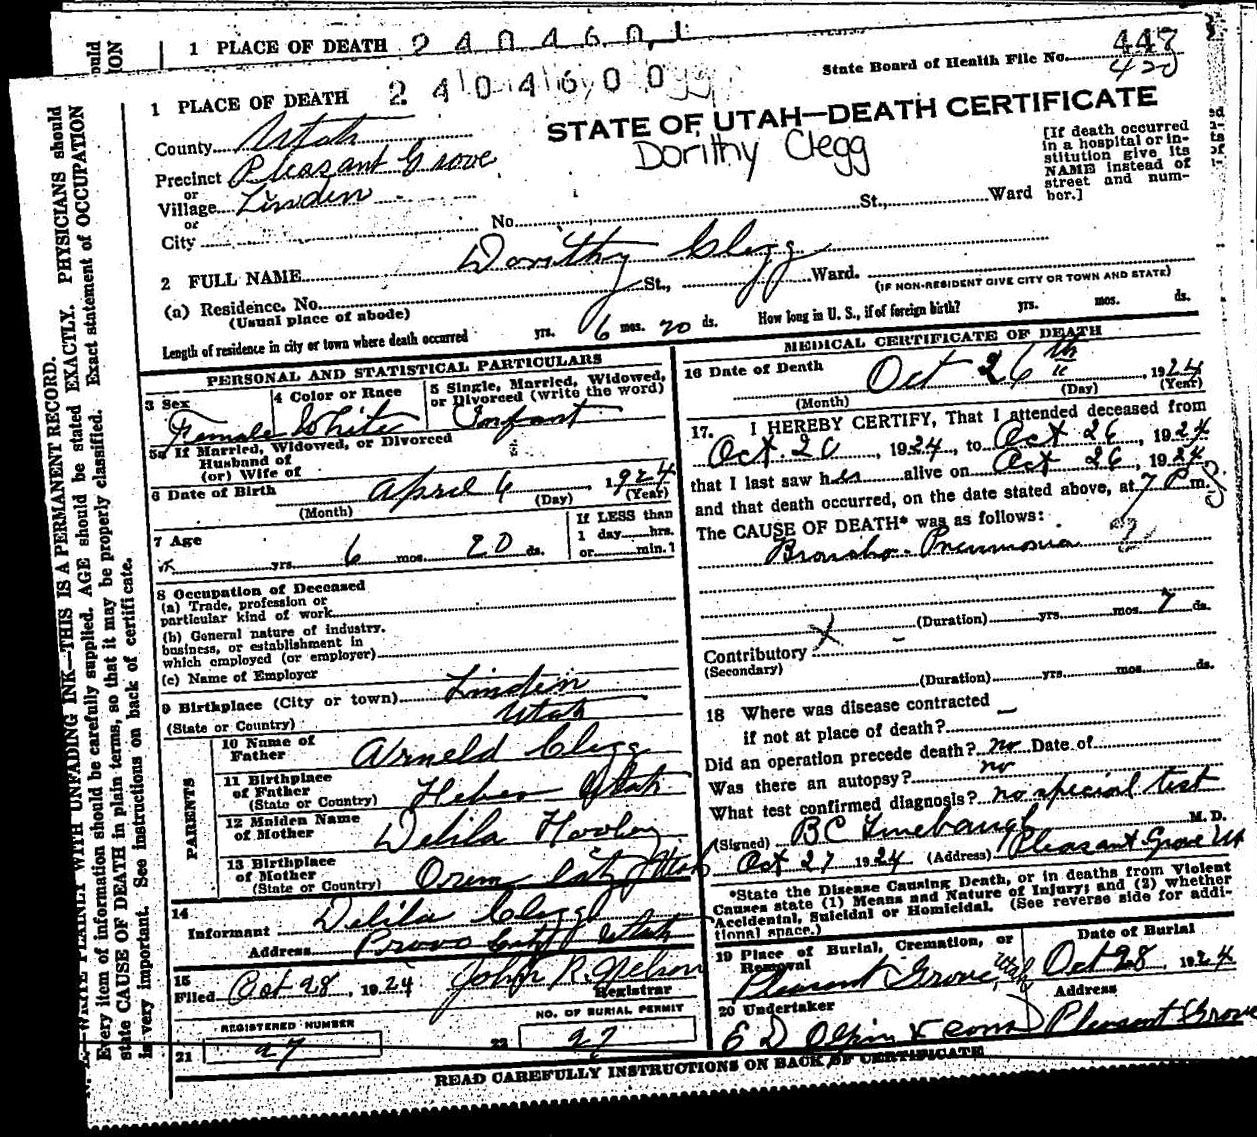 1 PLACE OF DEATH 2404601
State Board of Health File No. 447
420
1 PLACE OF DEATH 2404600
STATE OF UTAH—DEATH CERTIFICATE
Dorithy Clegg
County Utah
Precinct Pleasant Grove
or
Village Linden
or
City No. St., Ward
[If death occurred
in a hospital or in-
stitution give its
NAME instead of
street and num-
ber.]
2 FULL NAME Dorithy Clegg
(a) Residence. No. St., Ward.
(Usual place of abode)
(IF NON-RESIDENT GIVE CITY OR TOWN AND STATE)
Length of residence in city or town where death occurred yrs. 6 mos. 20 ds. How long in U. S., if of foreign birth? yrs. mos. ds.
PERSONAL AND STATISTICAL PARTICULARS
3 Sex
Female
4 Color or Race
White
5 Single, Married, Widowed,
or Divorced (write the word)
Infant
5a If Married, Widowed, or Divorced
Husband of
(or) Wife of
6 Date of Birth April 6, 1924
(Month) (Day) (Year)
7 Age
yrs. 6 mos. 20 ds.
If LESS than
1 day hrs.
or min.?
8 Occupation of Deceased
(a) Trade, profession or
particular kind of work
(b) General nature of industry,
business, or establishment in
which employed (or employer)
(c) Name of Employer
9 Birthplace (City or town) Linden
(State or Country) Utah
PARENTS
10 Name of
Father Arneld Clegg
11 Birthplace
of Father
(State or Country) Heber Utah
12 Maiden Name
of Mother Delila
13 Birthplace
of Mother
(State or Country) Orem City Utah
14
Informant Delila Clegg
Address Provo City Utah
15
Filed Oct 28, 1924 John R. Nelson
Registrar
REGISTERED NUMBER
21 27
NO. OF BURIAL PERMIT
22 27
MEDICAL CERTIFICATE OF DEATH
16 Date of Death Oct 26th, 1924
(Month) (Day) (Year)
17. I HEREBY CERTIFY, That I attended deceased from
Oct. 20, 1924, to Oct 26, 1924
that I last saw her alive on Oct 26, 1924
and that death occurred, on the date stated above, at 7 P m.
The CAUSE OF DEATH* was as follows:
Broncho-Pneumonia
(Duration) yrs. mos. 7 ds.
Contributory
(Secondary)
(Duration) yrs. mos. ds.
18 Where was disease contracted
if not at place of death?
Did an operation precede death? no Date of
Was there an autopsy? no
What test confirmed diagnosis? no special test
(Signed) BC Linebaugh M. D.
Oct 27 1924 (Address) Pleasant Grove Ut
*State the Disease Causing Death, or in deaths from Violent
Causes state (1) Means and Nature of Injury; and (2) whether
Accidental, Suicidal or Homicidal. (See reverse side for addi-
tional space.)
19 Place of Burial, Cremation, or
Removal
Pleasant Grove, Utah
Date of Burial
Oct 28, 1924
20 Undertaker
E D Olpin & sons
Address
Pleasant Grove
READ CAREFULLY INSTRUCTIONS ON BACK OF CERTIFICATE
WRITE PLAINLY WITH UNFADING INK—THIS IS A PERMANENT RECORD.
Every item of information should be carefully supplied. AGE should be stated EXACTLY. PHYSICIANS should
state CAUSE OF DEATH in plain terms, so that it may be properly classified. Exact statement of OCCUPATION
is very important. See instructions on back of certificate.